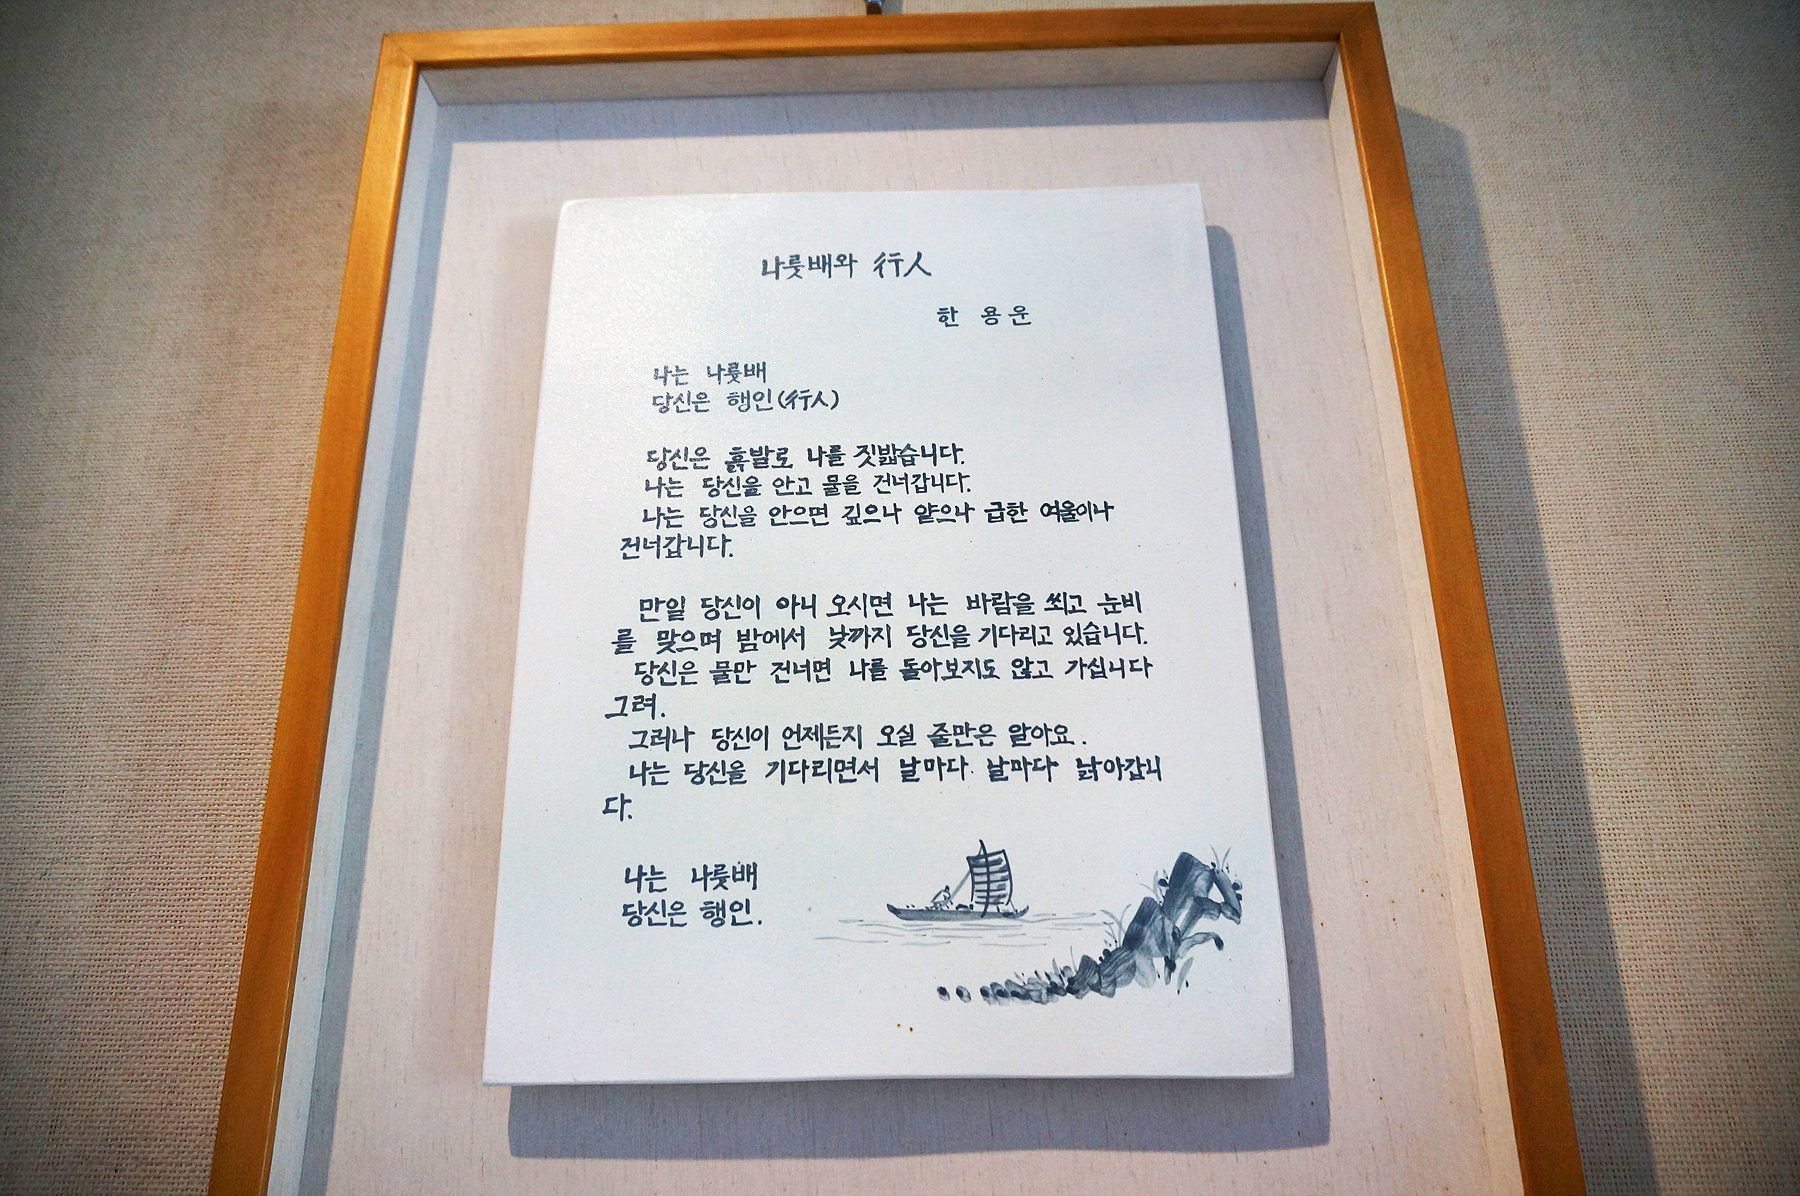 나룻배와 行人
한 용운
나는 나룻배
당신은 행인(行人)
당신은 흙발로 나를 짓밟습니다.
나는 당신을 안고 물을 건너갑니다.
나는 당신을 안으면 깊으나 얕으나 급한 여울이나
건너갑니다.
만일 당신이 아니 오시면 나는 바람을 쐬고 눈비
를 맞으며 밤에서 낮까지 당신을 기다리고 있습니다.
당신은 물만 건너면 나를 돌아보지도 않고 가십니다
그려.
그러나 당신이 언제든지 오실 줄만은 알아요.
나는 당신을 기다리면서 날마다 날마다 낡아갑니
다.
나는 나룻배
당신은 행인.